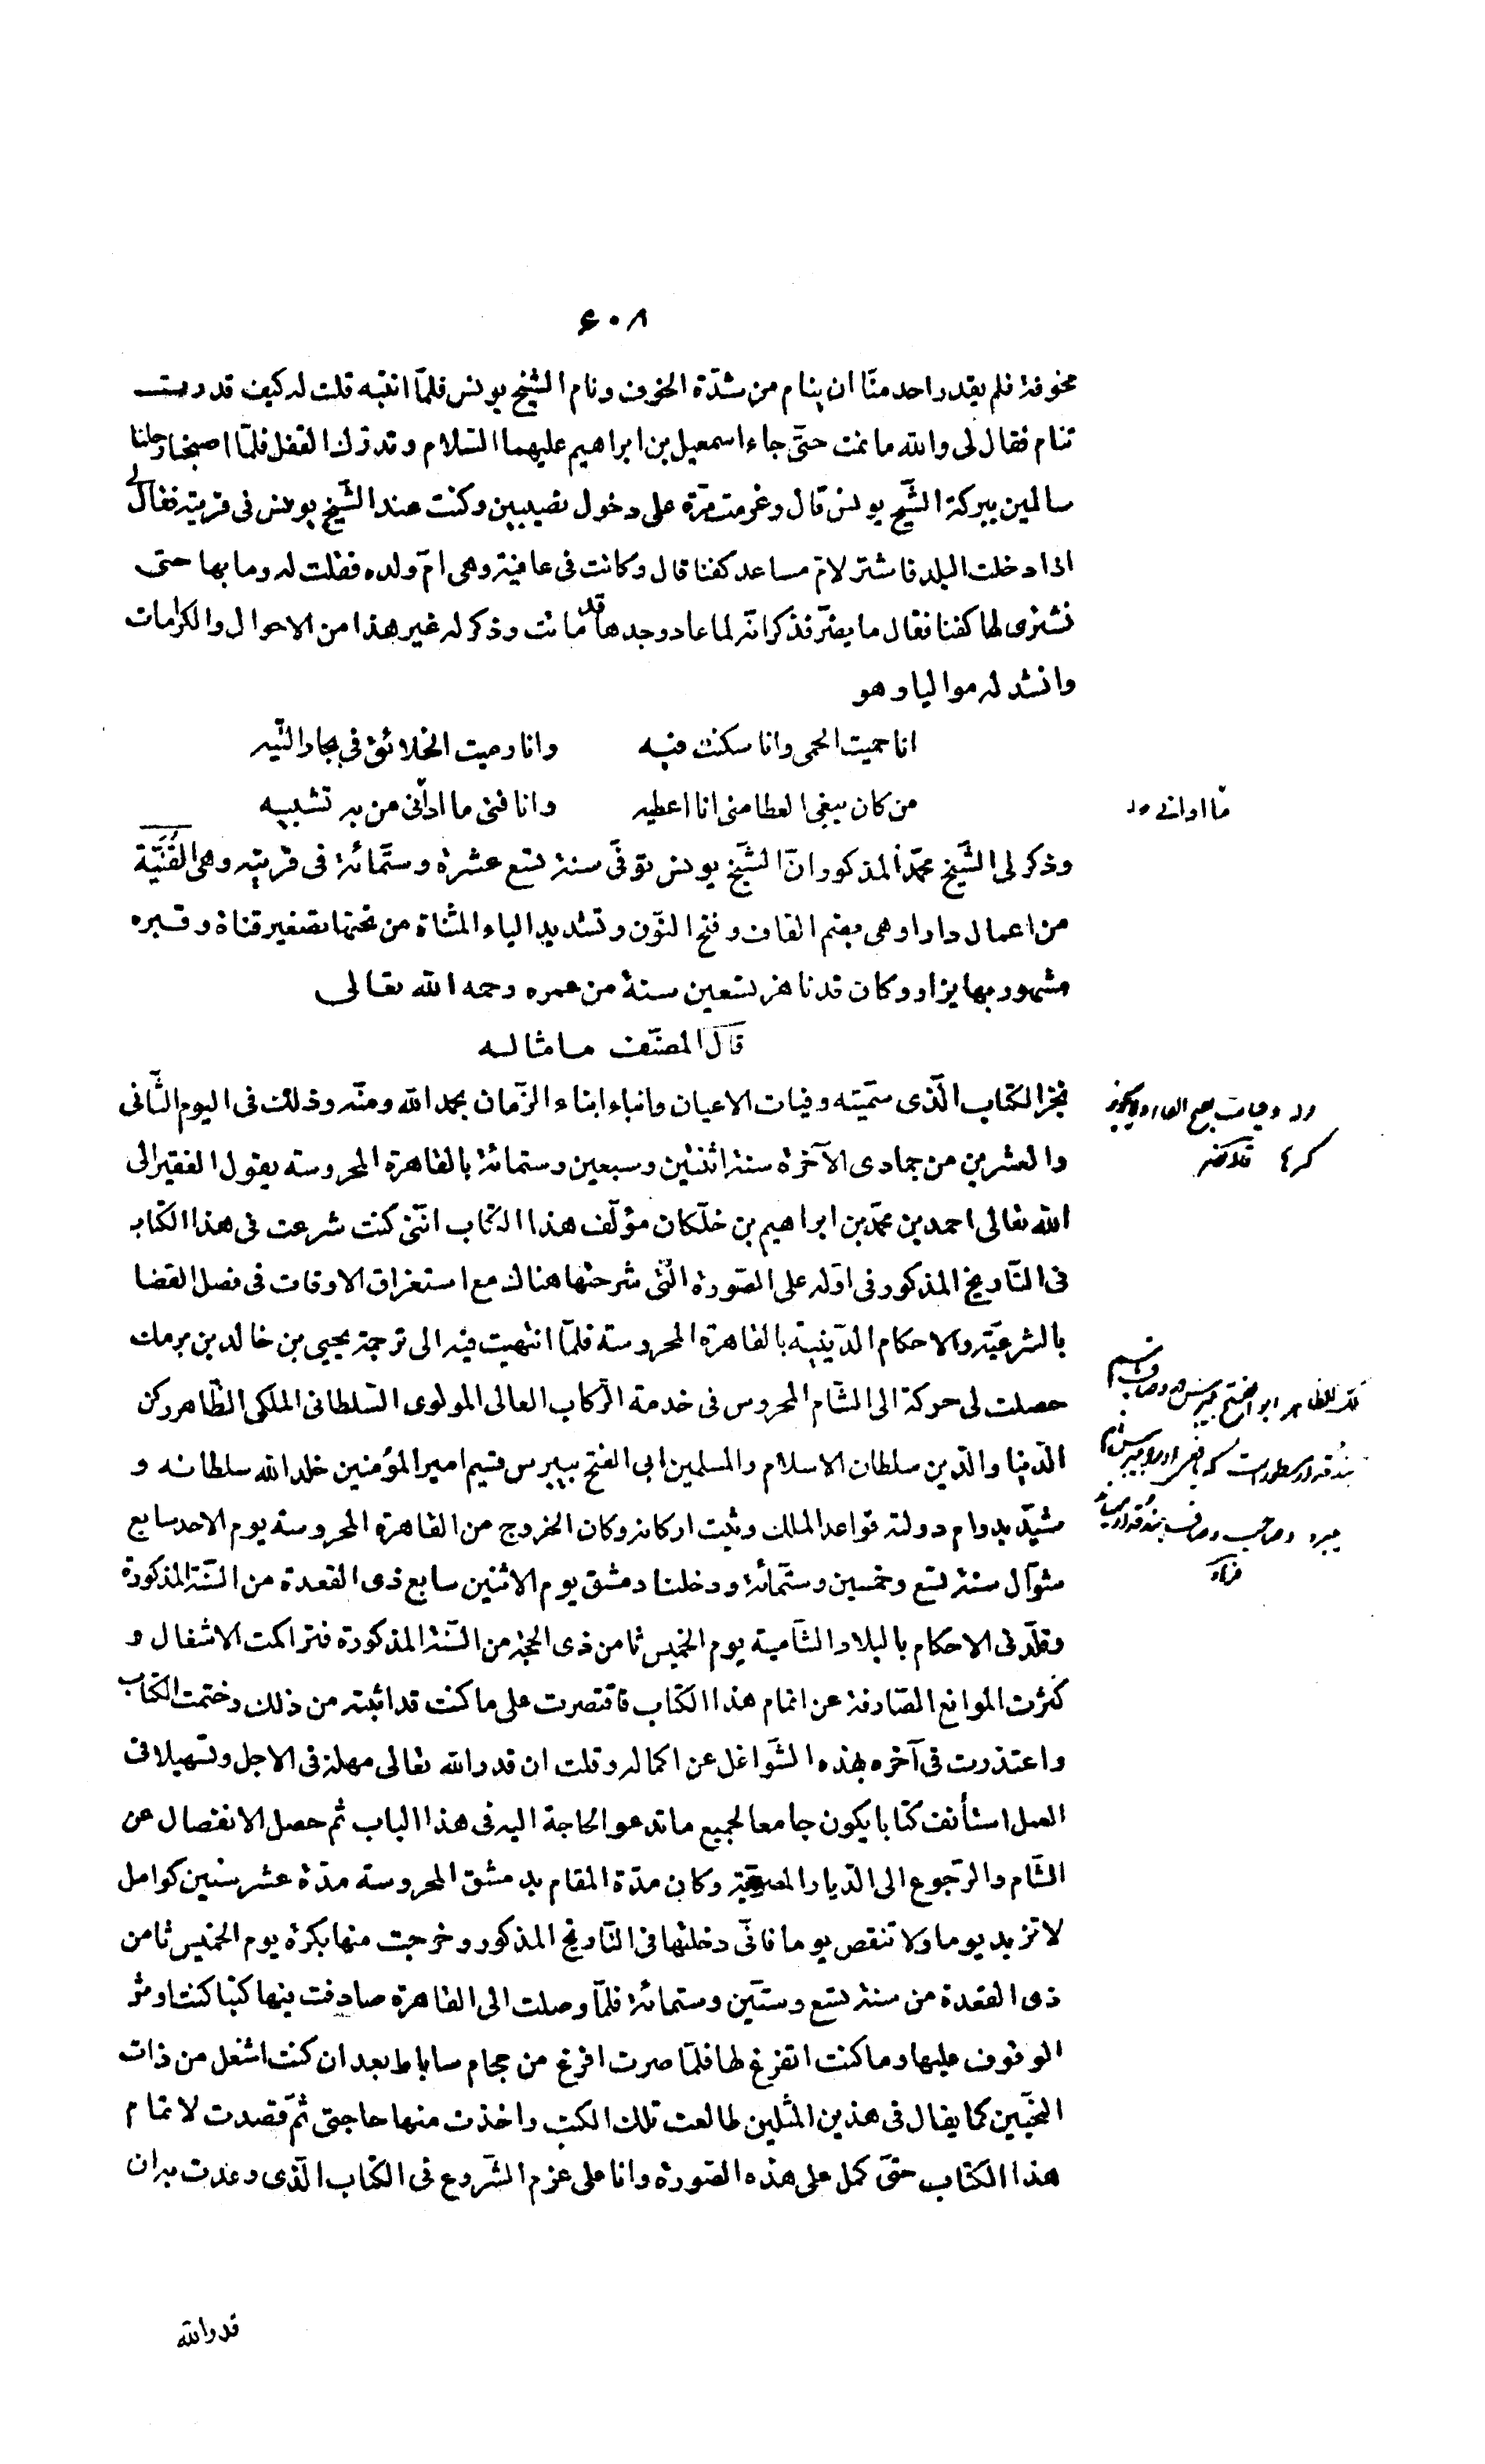 ۶۰۸
مخوفة فلم يقدر احد منّا ان ينام من شدّة الخوف ونام الشّيخ يونس فلمّا انتبه قلت له كيف قدرت
تنام فقال لى والله ما نمت حتّى جاء اسمعيل بن ابراهيم عليهما السّلام وتدرك القفل فلمّا اصبحنا رحلنا
سالمين ببركة الشّيخ يونس قال وعزمت مرّة على دخول نصيبين وكنت عند الشّيخ يونس فى قريته فقال لى
اذا دخلت البلد فاشتر لامّ مساعد كفنا قال وكانت فى عافية وهى امّ ولده فقلت له وما بها حتى
نشترى لها كفنا فقال ما يضرّ فذكر انّه لما عاد وجدها قد ماتت وذكر له غير هذا من الاحوال والكرامات
وانشد له مواليا وهو
انا حميت الحمى وانا سكنت فيه وانا رميت الخلائق فى بحار التّيه
من كان يبغى العطا منى انا اعطيه وانا فتى ما ادانى من به تشبيه
ما ادانى
وذكر لى الشّيخ محمّد المذكور انّ الشّيخ يونس توفّى سنة تسع عشرة وستّمائة فى قريته وهى القُنَيَّة
من اعمال دارا وهى بضم القاف وفتح النّون وتشديد الياء المثناة من تحتها تصغير قناة وقبره
مشهور بها يزار وكان قد ناهز تسعين سنة من عمره رحمه الله تعالى
قال المصنّف ما مثاله
نجز الكتاب الّذى سمّيته وفيات الاعيان وانباء ابناء الزّمان بحمد الله ومنّه وذلك فى اليوم الثّانى
والعشرين من جمادى الآخرة سنة اثنتين وسبعين وستمائة بالقاهرة المحروسة يقول الفقير الى
الله تعالى احمد بن محمّد بن ابراهيم بن خلّكان مؤلّف هذا الكتاب انّنى كنت شرعت فى هذا الكتاب
فى التّاريخ المذكور فى اوّله على الصّورة الّتى شرحتها هناك مع استغراق الاوقات فى فصل القضا
بالشرعيّة والاحكام الدّينية بالقاهرة المحروسة فلمّا انتهيت فيه الى ترجمة يحيى بن خالد بن برمك
حصلت لى حركة الى الشّام المحروس فى خدمة الرّكاب العالى المولوى السّلطانى الملكى الظّاهر ركن
الدّنيا والدّين سلطان الاسلام والمسلمين ابى الفتح بيبرس قسيم امير المؤمنين خلد الله سلطانه و
مشيّد بدوام دولته قواعد الملك وثبت اركانه وكان الخروج من القاهرة المحروسة يوم الاحد سابع
شوّال سنة تسع وخمسين وستّمائة ودخلنا دمشق يوم الاثنين سابع ذى القعدة من السّنة المذكورة
وقلّدنى الاحكام بالبلاد الشّامية يوم الخميس ثامن ذى الحجة من السّنة المذكورة فتراكمت الاشغال و
كثرت الموانع الصّارفة عن اتمام هذا الكتاب فاقتصرت على ما كنت قد اثبته من ذلك وختمت الكتاب
واعتذرت فى آخره بهذه الشّواغل عن اكماله وقلت ان قدر الله تعالى مهلة فى الاجل وتسهيلا فى
العمل استأنف كتابا يكون جامعا لجميع ما تدعو الحاجة اليه فى هذا الباب ثم حصل الانفصال عن
الشّام والرّجوع الى الدّيار المصريّة وكان مدّة المقام بدمشق المحروسة مدّة عشر سنين كوامل
لا تزيد يوما ولا تنقص يوما فانّى دخلتها فى التّاريخ المذكور وخرجت منها بكرة يوم الخميس ثامن
ذى القعدة من سنة تسع وستّين وستمائة فلمّا وصلت الى القاهرة صادفت بها كتبا كنت اوثر
الوقوف عليها وما كنت اتفرغ لها فلمّا صرت افرغ من حجام ساباط بعد ان كنت اشغل من ذات
النّحيين كما يقال فى هذين المثلين طالعت تلك الكتب واخذت منها حاجتى ثمّ قصدت لاتمام
هذا الكتاب حتّى كمل على هذه الصّورة وانا على عزم الشّروع فى الكتاب الّذى وعدت به ان
قدر الله